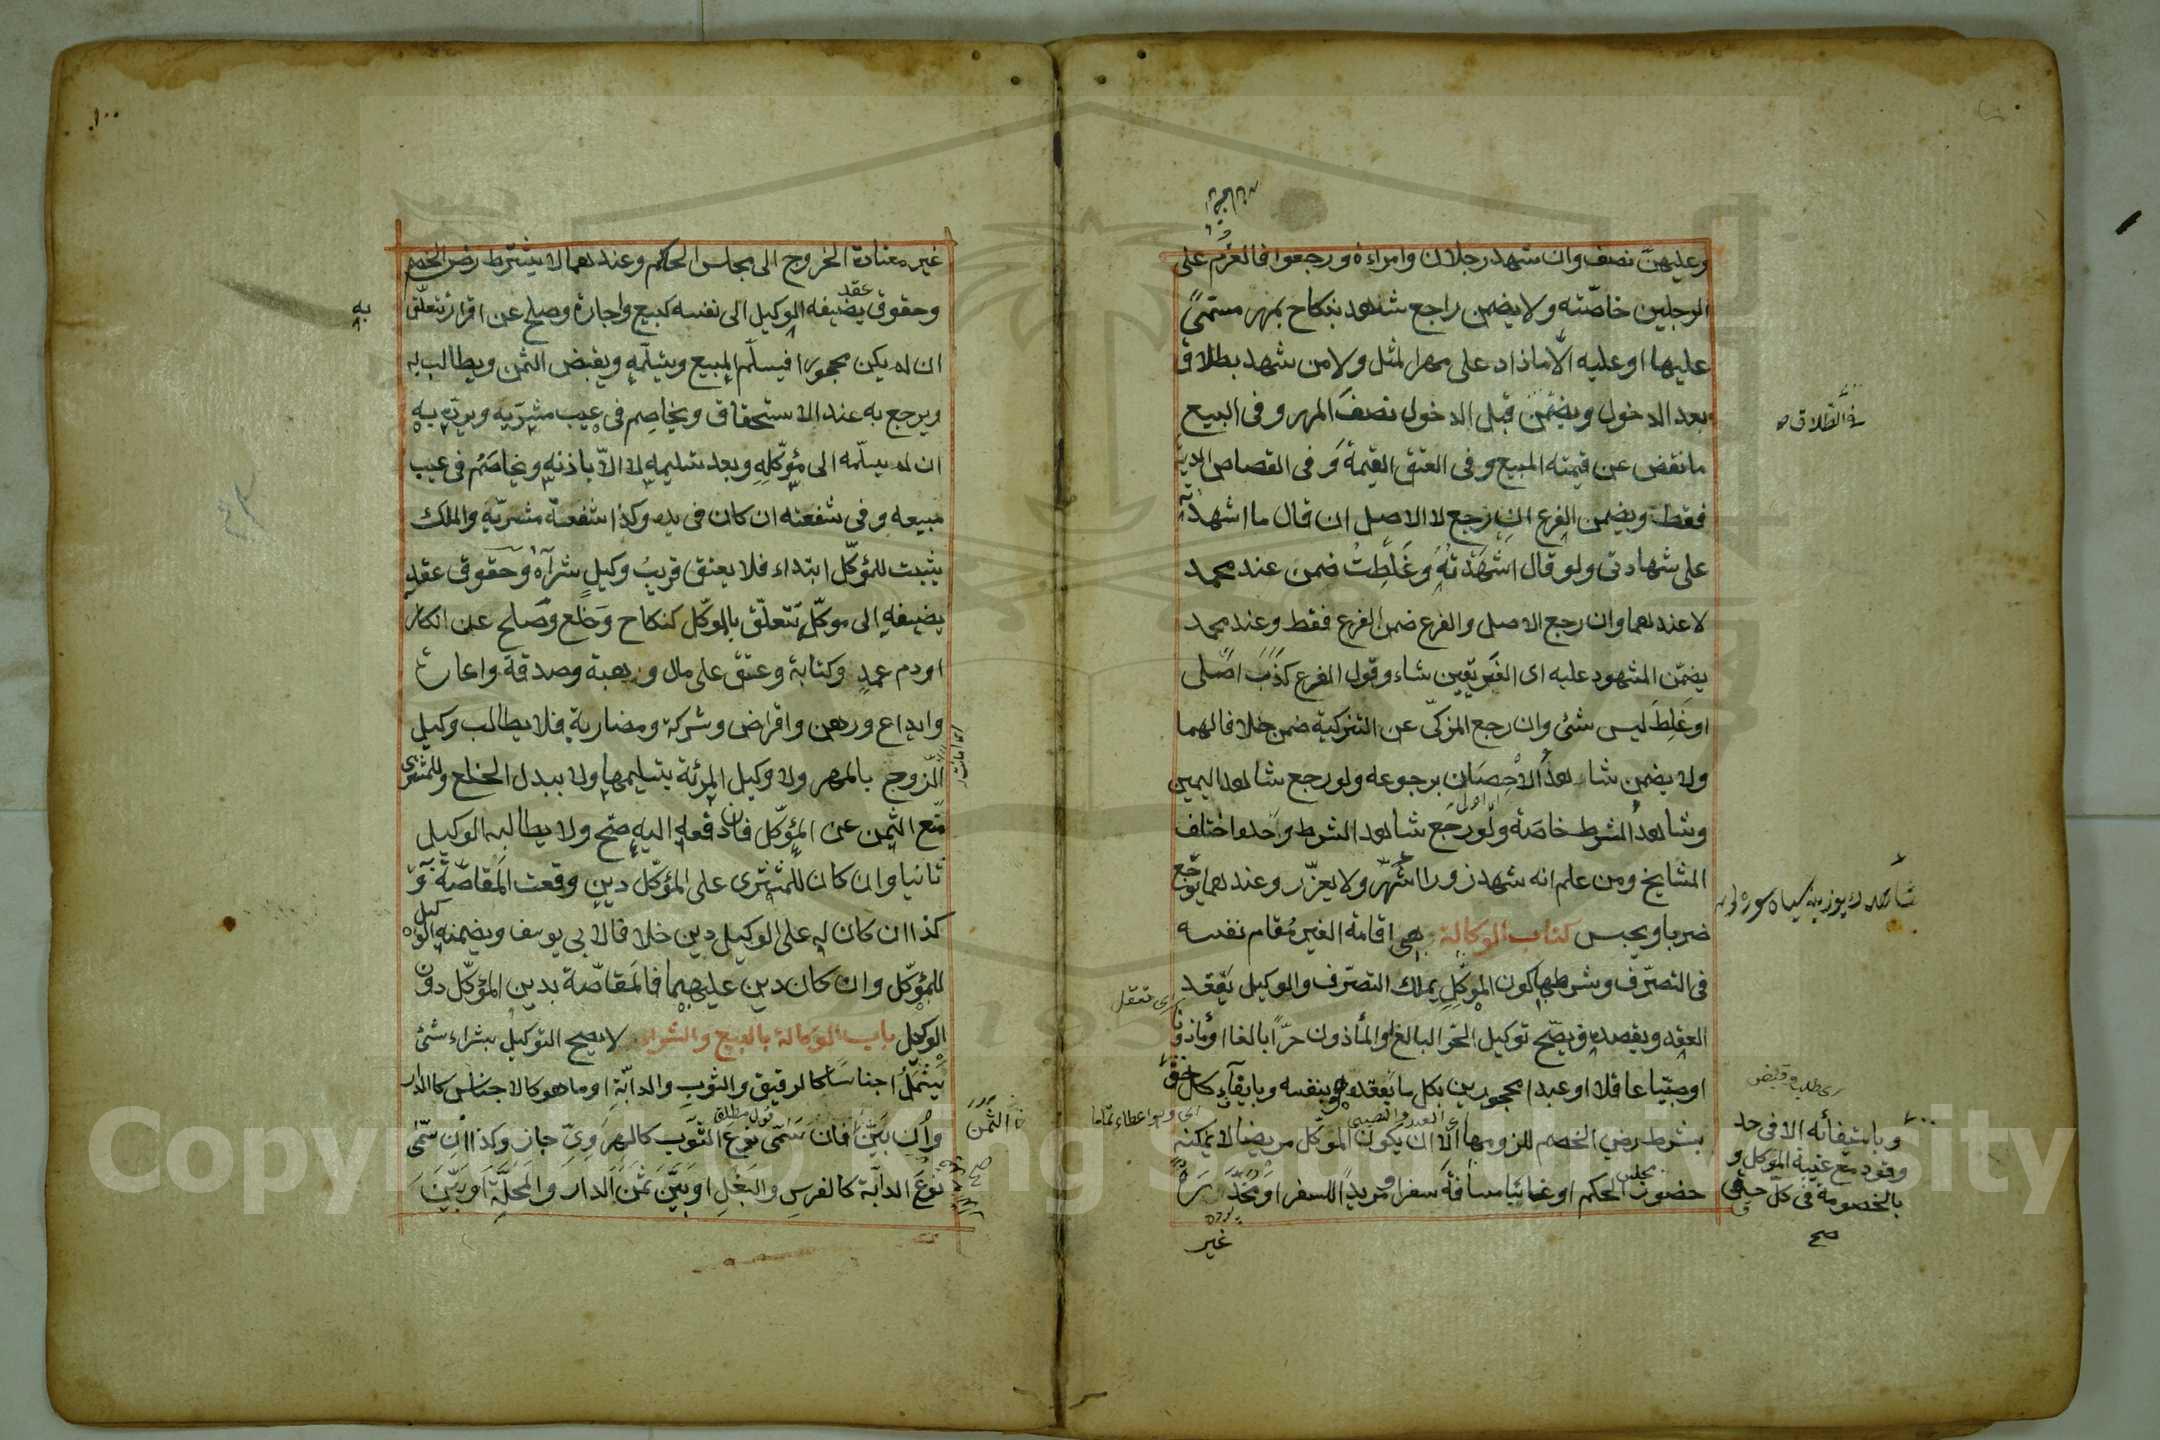 وعليهن نصف وان شهد رجلان وامراءة ورجعوا فالغرم على
الرجلين خاصّته ولا يضمن راجع شاهد بنكاح بمهر مسمّى
عليها او عليه الّا ما ذاد على مهر المثل ولا من شهد بطلاق
بعد الدخول ويضمن قبل الدخول نصف المهر وفى البيع
ما نقض عن قيمته المبيع وفى العتق القيمة وفى القصاص الدية
فقط ويضمن الفرع ان رجع لا الاصل ان قال ما اشهدته
على شهادتى ولو قال اشهدته وغلطت ضمن عند محمد
لا عندهما وان رجع الاصل والفرع ضمن الفرع فقط وعند محمد
يضمّن المشهود عليه اى الفريقين شاء وقول الفرع كذب اصلى
او غلط ليس شئ وان رجع المزكّى عن التزكية ضمن خلافا لهما
ولا يضمن شاهد الاحصان برجوعه ولو رجع شاهد اليمين
وشاهد الشرط خاصة ولو رجع شاهد الشرط وحده اختلف
المشايخ ومن علم انه شهد زورا شهّر ولا يعزّر وعندهما يوجع
ضربا ويحبس كتاب الوكالة وهى اقامة الغير مقام نفسه
فى التصرّف وشرطها كون الموكّل يملك التصرّف والوكيل يعقد
العقد ويقصده فيصّح توكيل الحرّ البالغ او المأذون حرّا بالغا او ماذونا
او صبّيا عاقلا او عبدا محجورين بكل ما يعقده هو بنفسه وبايفآء كل حقّ
بشرط رضي الخصم للزومها الا ان يكون الموكّل مريضا لا يمكنه
حضور مجلس الحكم او غائبا مسافة سفر او مريدا للسفر او مخدّرة
غير
فى الطلاق
اى تعقل
وباستيفائه الا فى حد
وقود مع غيبة الموكل و
بالخصومة فى كلّ حقّ
صح
١٠٠
غير معتادة الخروج الى مجلس الحاكم وعندهما لا يشترط رضى الخصم
وحقوق عقد يضيفه الوكيل الى نفسه كبيع واجارة وصلح عن اقرار تتعلّق
به
ان لم يكن محجورا فيسلّم المبيع ويتسلّمه ويقبض الثمن ويطالب به
ويرجع به عند الاستحقاق ويخاصم فى عيب مشريه ويردّه به
ان لم يسلّمه الى مؤكّله وبعد تسليمه لا الاّ باذنه ويخاصم فى عيب
مبيعه وفى شفعته ان كان فى يده وكذا شفعة مشريّه والملك
يثبت للمؤكّل ابتداء فلا يعتق قريب وكيل شرآه وحقوق عقد
يضيفه الى موكّل تتعلّق بالموكّل كنكاح وخلع وصلح عن انكار
او دم عمد وكتابة وعتق على مال وهبة وصدقة واعارة
وايداع ورهن واقراض وشركة ومضاربة فلا يطالب وكيل
الزّوج بالمهر ولا وكيل المرئة بتسليمها ولا ببدل الخلع وللمشترى
منع الثمن عن المؤكّل فان دفعه اليه صّح ولا يطالبه الوكيل
ثانيا وان كان للمشترى على المؤكّل دين وقعت المقاصّة و
كذا ان كان له على الوكيل دين خلافا لابى يوسف ويضمنه الوكيل
للمؤكّل وان كان دين عليهما فالمقاصّة بدين المؤكّل دون
الوكيل باب الوكالة بالبيع والشراء لا يصح التوكيل بشراء شئ
يشمل اجناسا كالرقيق والثوب والدابّة او ما هو كالاجناس كالدار
وان بيّن الثمن فان سمّى نوع الثوب كالهروىّ جاز وكذا ان سمّى
نوع الدابّة كالفرس والبغل او بيّن ثمن الدار والمحلّة او بيّن